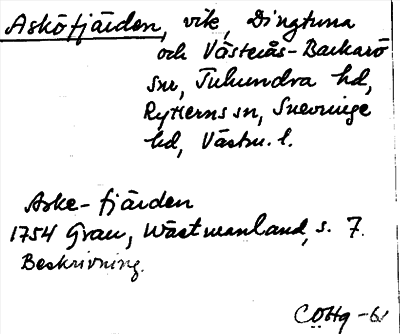 Asköfjärden, vik, Dingtuna
och Västerås-Barkarö
snr, Tuhundra hd,
Rytterns sn, Snevringe
hd, Västm. l.
Aske-fjärden
1754 Grau, Wästmanland, s. 7.
Beskrivning.
COHg -61